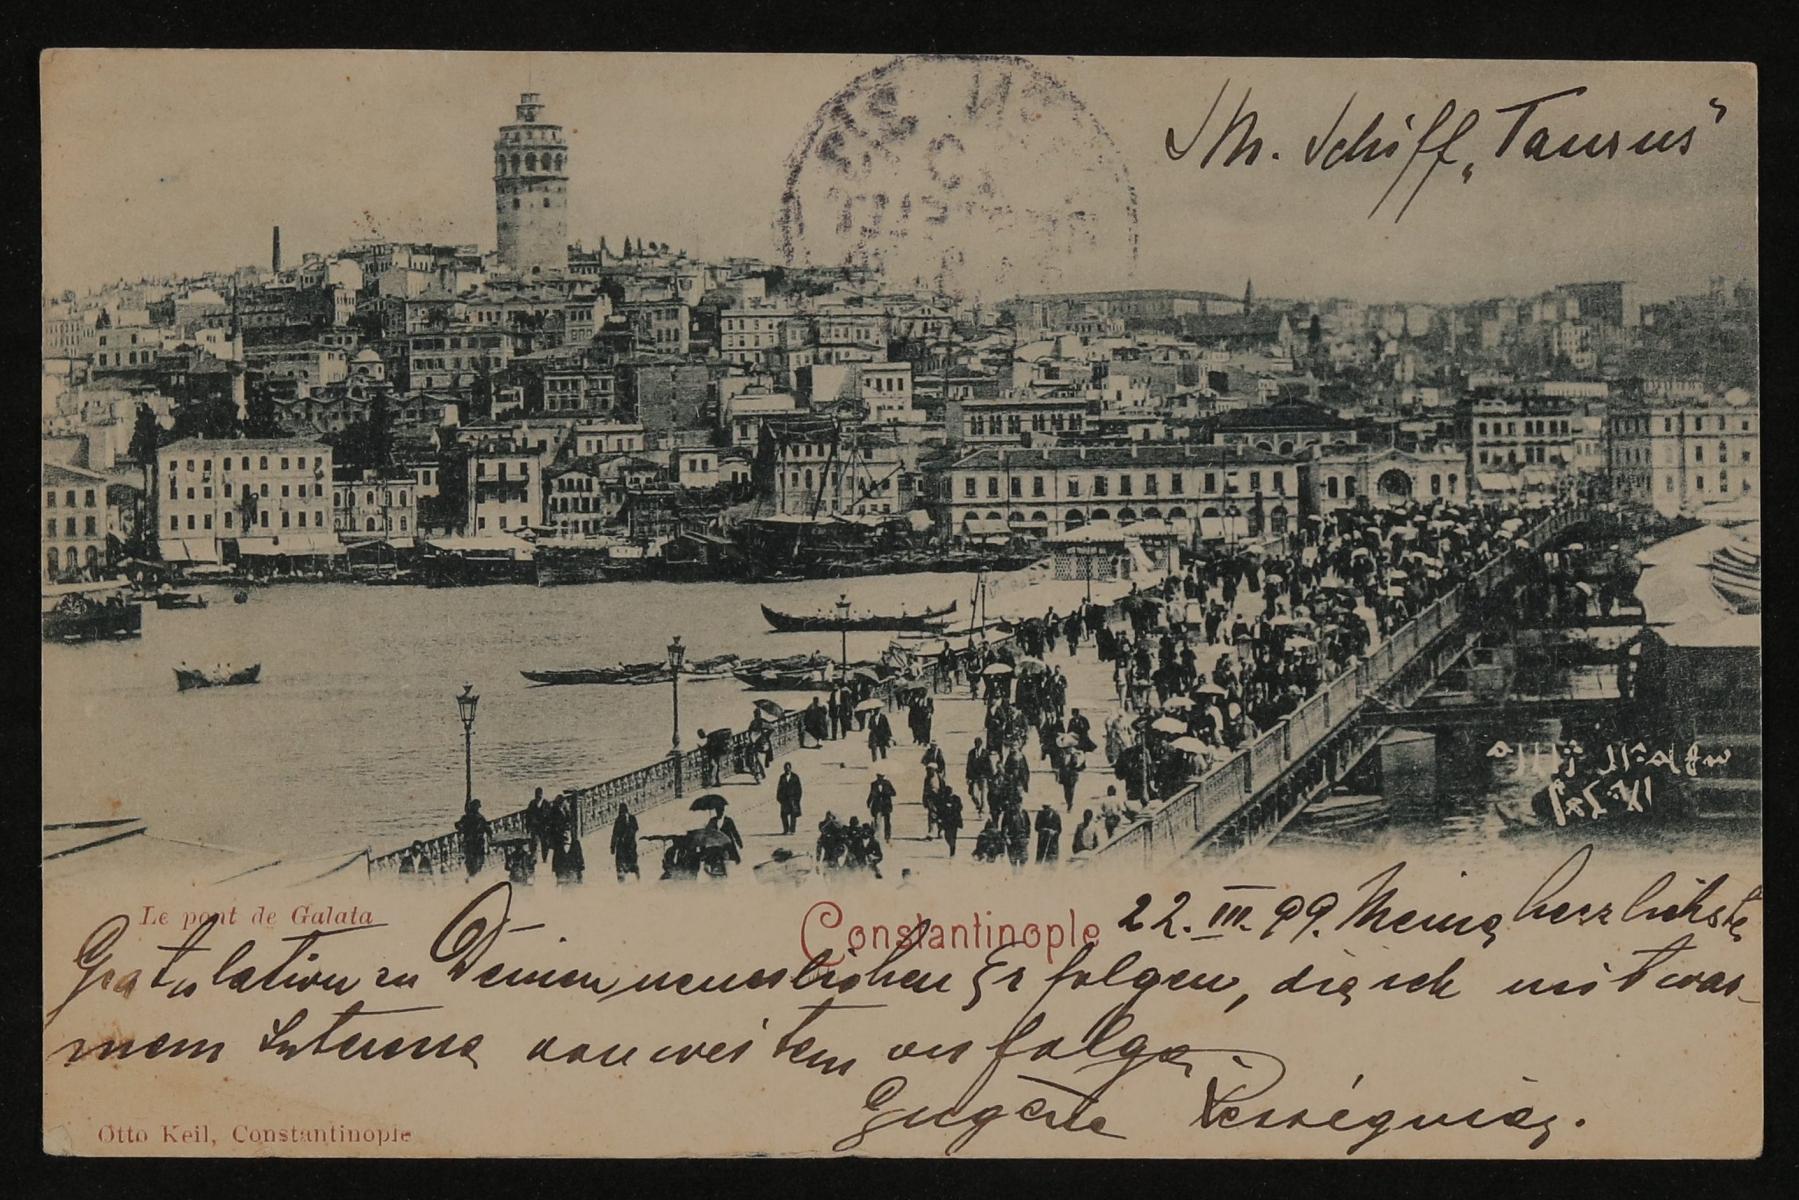 Schiff „Taurus"
Le pont de Galata
Constantinople 22. III. 99. Meine herzlichste
Gratulation zu Deinen neuerlichen Erfolgen, die ich mit war-
mem Interesse von weitem verfolge.
Eugène
Otto Keil, Constantinople